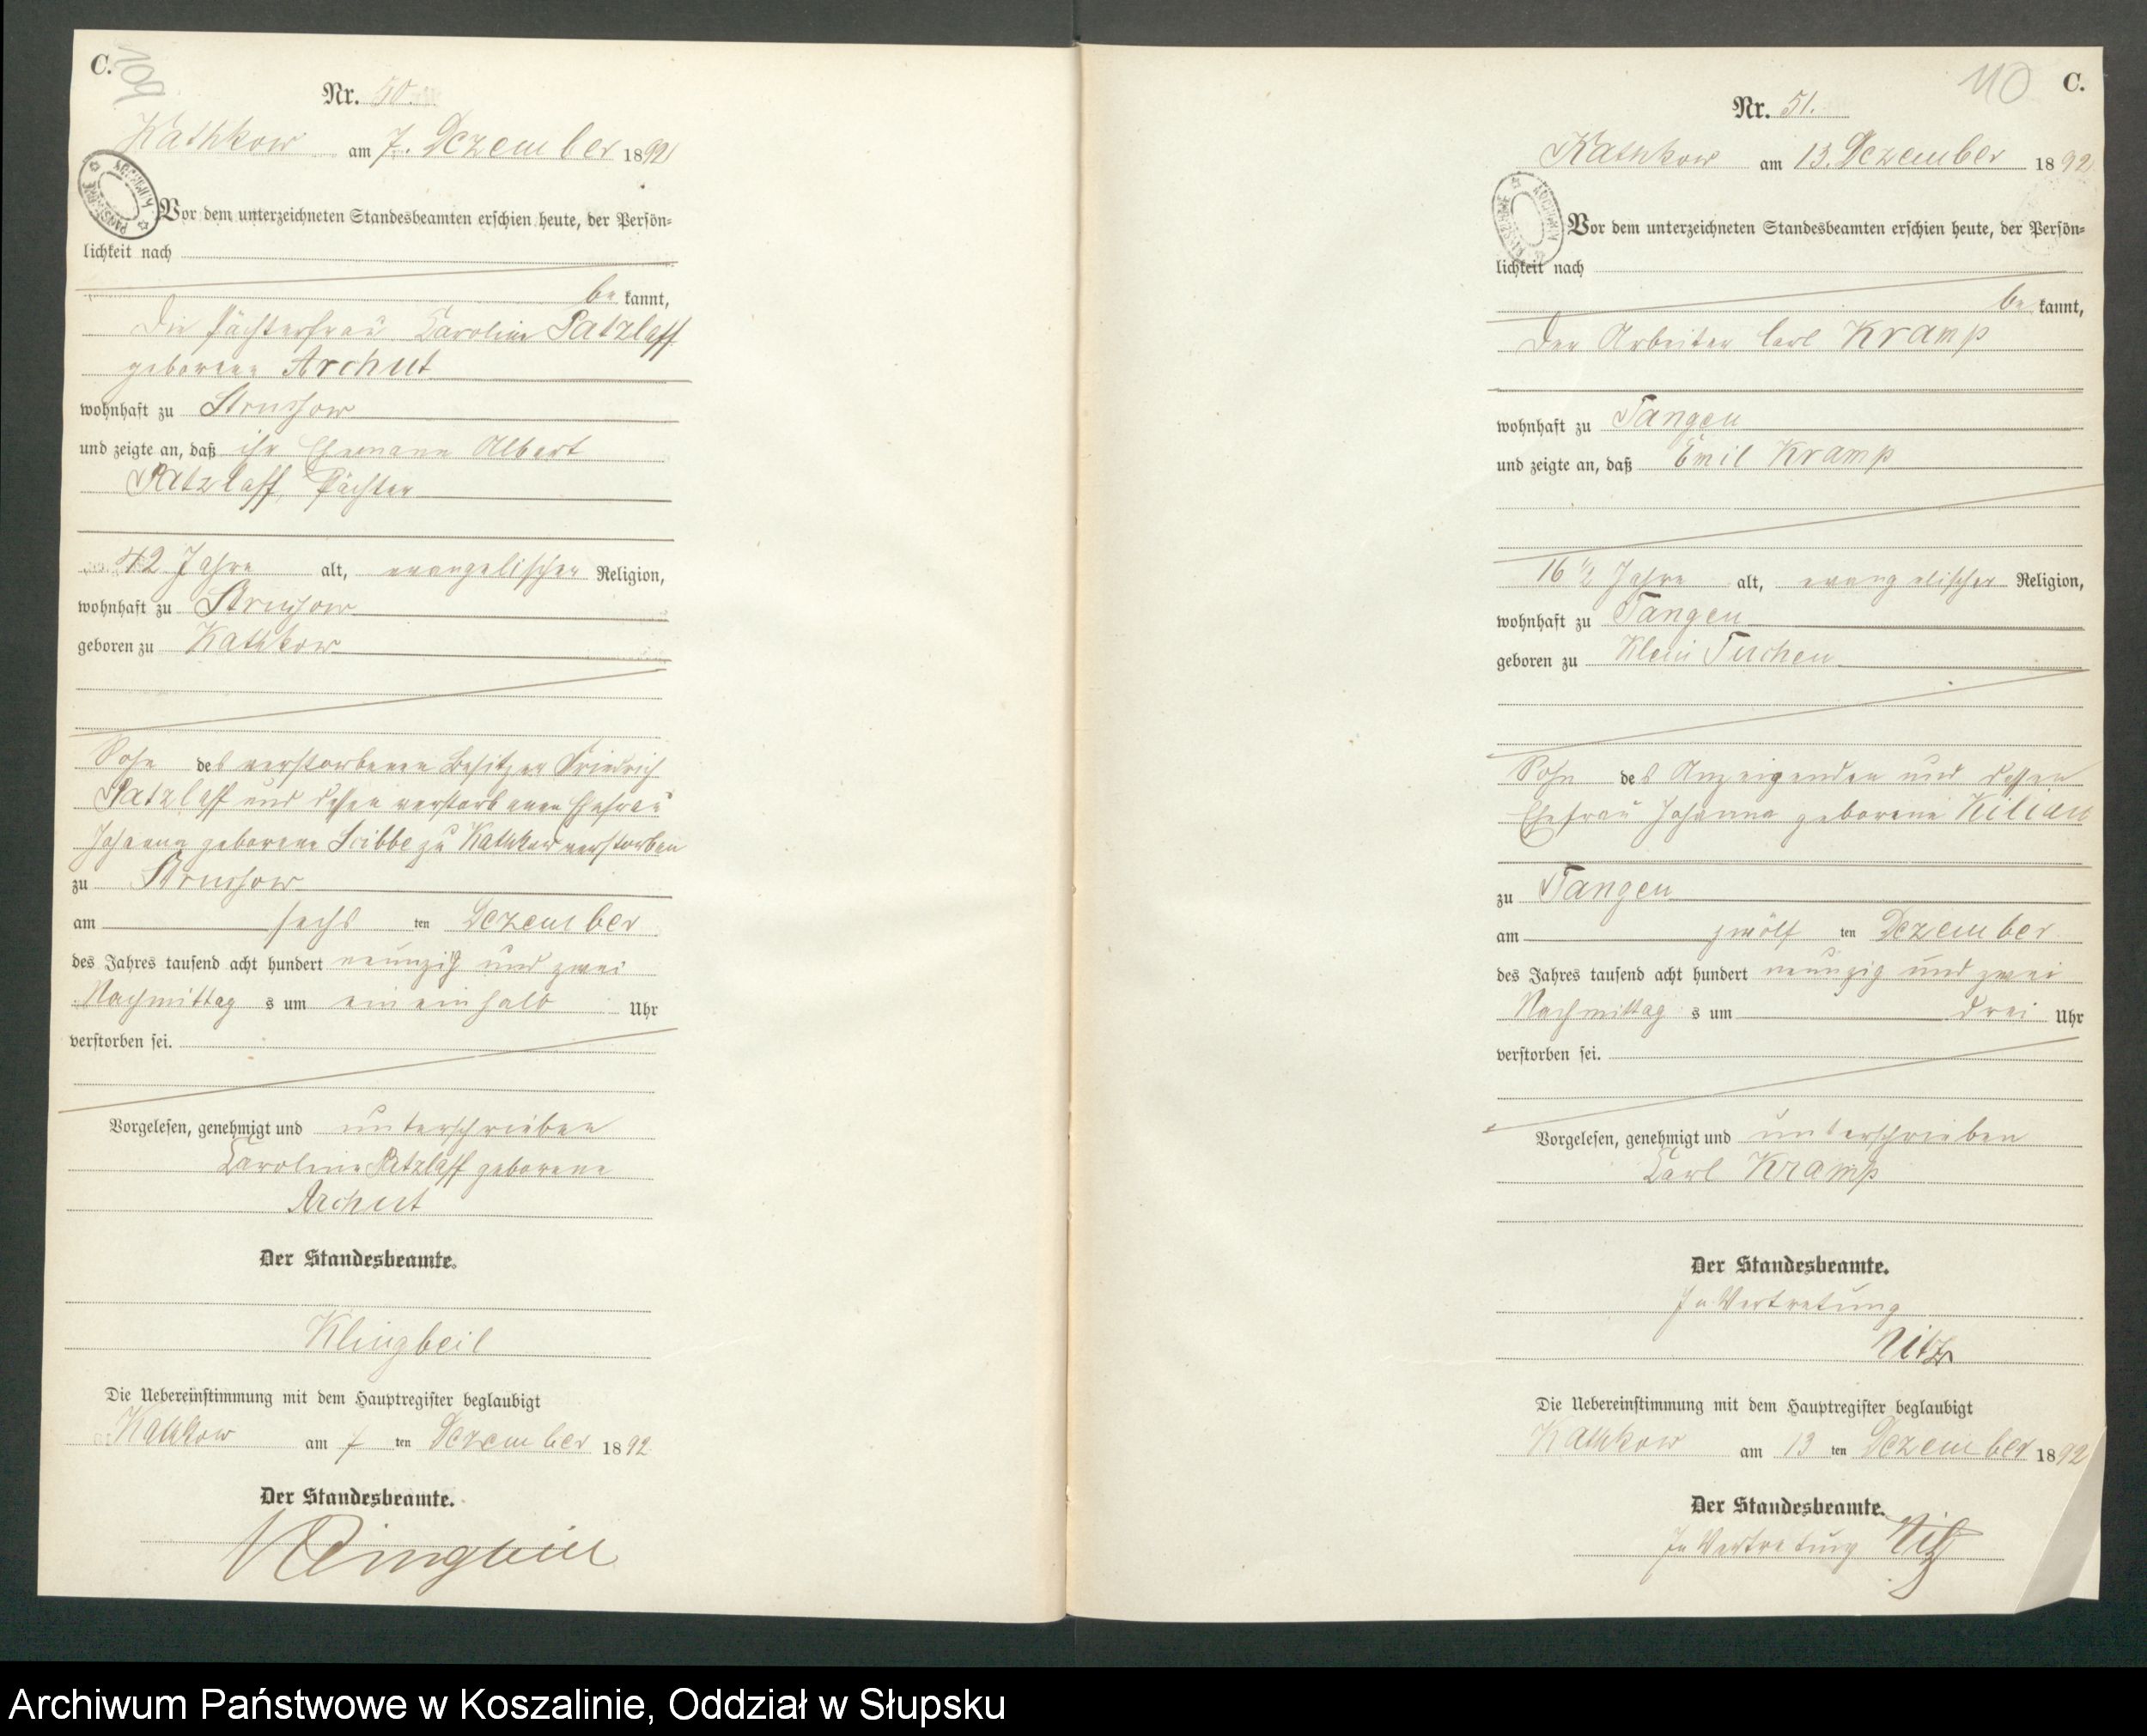 C.
109
Nr. 50.
Kathkow am 7. Dezember 1892
Vor dem unterzeichneten Standesbeamten erschien heute, der Persön=
lichkeit nach
be kannt,
die Pächterfrau Caroline Patzlaff
geborene Archut
wohnhaft zu Strussow
und zeigte an, daß ihr Ehemann Albert
Patzlaff, Pächter
42 Jahre alt, evangelischer Religion,
wohnhaft zu Strussow
geboren zu Kathkow
Sohn des verstorbenen Besitzer Friedrich
Patzlaff und dessen verstorbenen Ehefrau
Johanna geborene Scibbe zu Kathkow verstorben
zu Strussow
am sechs ten Dezember
des Jahres tausend acht hundert neunzig und zwei
Nachmittag s um ein einhalb Uhr
verstorben sei.
Vorgelesen, genehmigt und unterschrieben
Caroline Patzlaff geborene
Archut
Der Standesbeamte.
Klingbeil
Die Uebereinstimmung mit dem Hauptregister beglaubigt
Kathkow am 7 ten Dezember 1892
Der Standesbeamte.
Klingbeil
110
C.
Nr. 51.
Kathkow am 13. Dezember 1892
Vor dem unterzeichneten Standesbeamten erschien heute, der Persön=
lichkeit nach
be kannt,
der Arbeiter Carl Kramp
wohnhaft zu Tangen
und zeigte an, daß Emil Kramp
16 1/2 Jahre alt, evangelischer Religion,
wohnhaft zu Tangen
geboren zu Klein Tuchen
Sohn des Anzeigenden und dessen
Ehefrau Johanna geborene Kilian
zu Tangen
am zwölf ten Dezember
des Jahres tausend acht hundert neunzig und zwei
Nachmittag s um drei Uhr
verstorben sei.
Vorgelesen, genehmigt und unterschrieben
Carl Kramp
Der Standesbeamte.
In Vertretung
Nitz
Die Uebereinstimmung mit dem Hauptregister beglaubigt
Kathkow am 13 ten Dezember 1892
Der Standesbeamte.
In Vertretung Nitz
Archiwum Państwowe w Koszalinie, Oddział w Słupsku